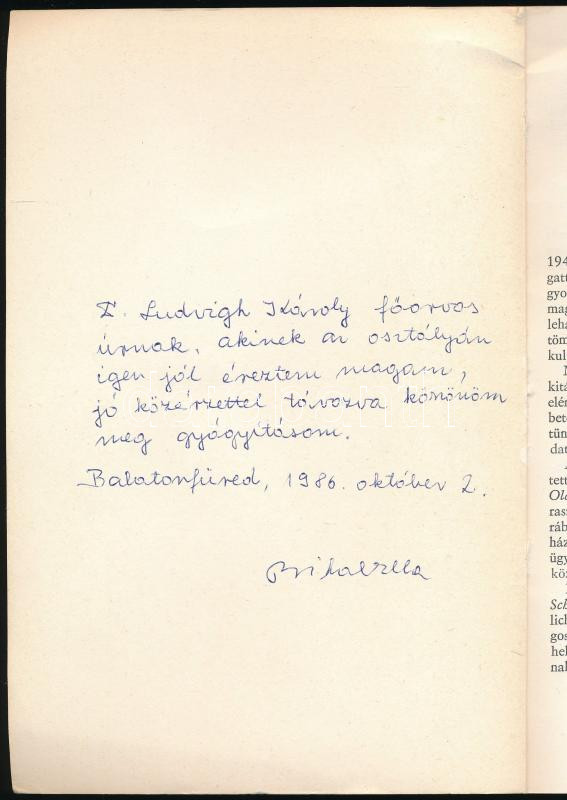 Ludvigh Károly főorvos
úrnak, akinek az osztályán
igen jól éreztem magam,
jó közérzettel távozva köszönöm
meg gyógyításom.
Balatonfüred, 1986. október 2.
194
gatt
gyo
mag
lehá
töm
kul
kitá
elér
bete
tün
dat
tett
Ola
rasz
ráb
ház
ügy
köz
Sch
lich
gos
hel
nal